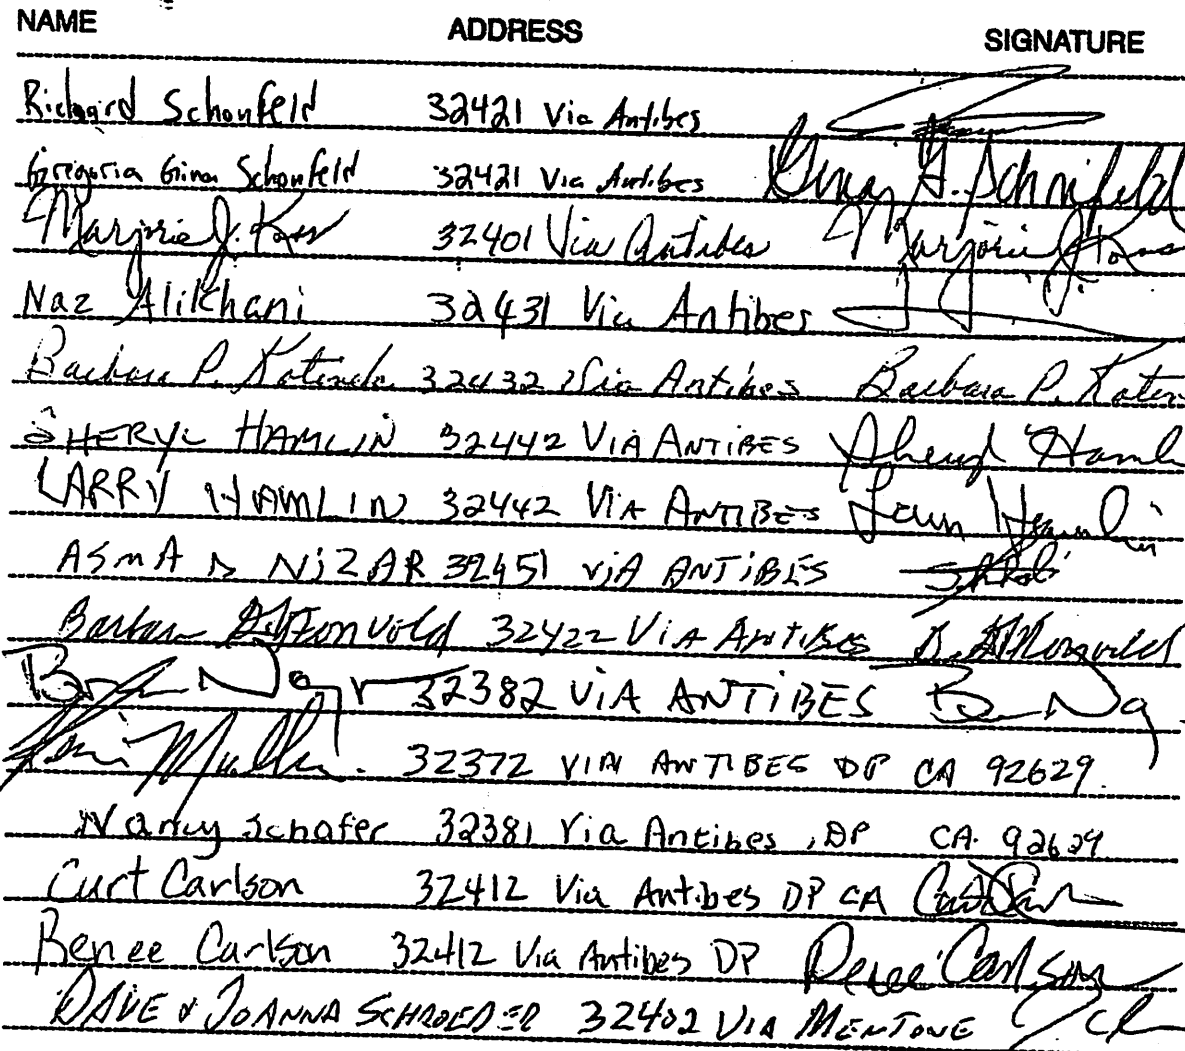 NAME ADDRESS SIGNATURE
Richard Schonfeld 32421 Via Antibes
Gregoria Gina Schonfeld 32421 Via Antibes Gina G. Schonfeld
Marjorie J. Kass 32401 Via Antibes Marjorie J. Kass
Naz Alikhani 32431 Via Antibes
Barbara P. 32432 Via Antibes Barbara P.
SHERYL HAMLIN 32442 VIA ANTIBES Sheryl Hamli
LARRY HAMLIN 32442 VIA ANTIBES Larry Hamlin
ASMA NiZAR 32451 ViA ANTiBES
Barbara 32422 ViA ANTIBES B.
32382 ViA ANTiBES
32372 VIA ANTIBES DP CA 92629.
Nancy Schafer 32381 Via Antibes, DP CA. 92629
Curt Carlson 32412 Via Antibes DP CA
Renee Carlson 32412 Via Antibes DP Renee Carlson
DAVE & JOANNA SCHROEDER 32402 VIA MENTONE